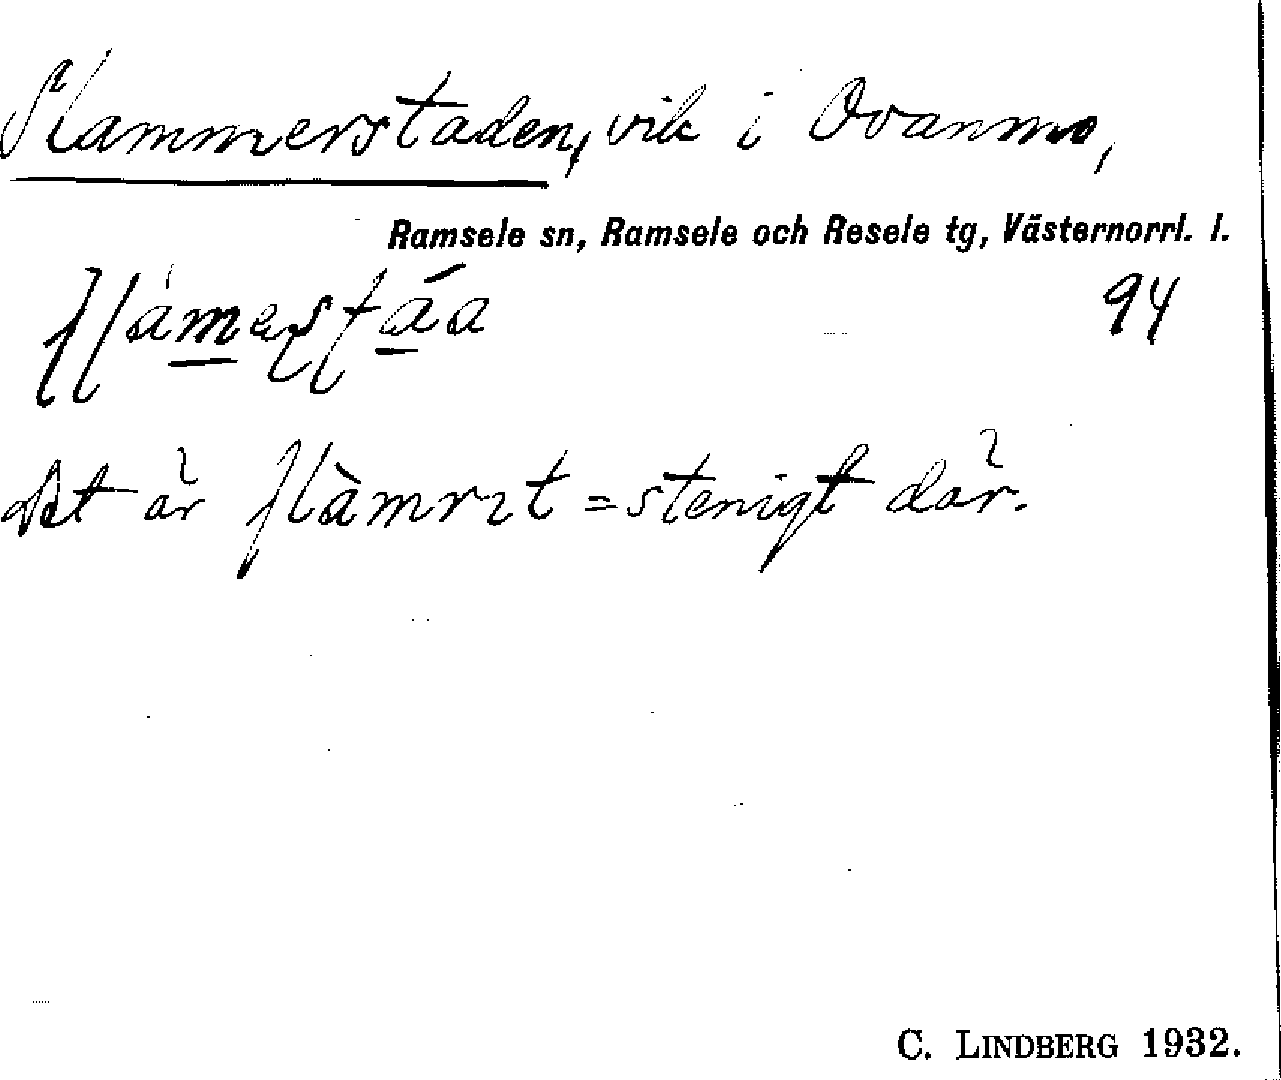 Slammerstaden, vik i Ovanmo,
Ramsele sn, Ramsele och Resele tg, Västernorrl. l.
94
Det är = stenigt där.
C. LINDBERG 1932.